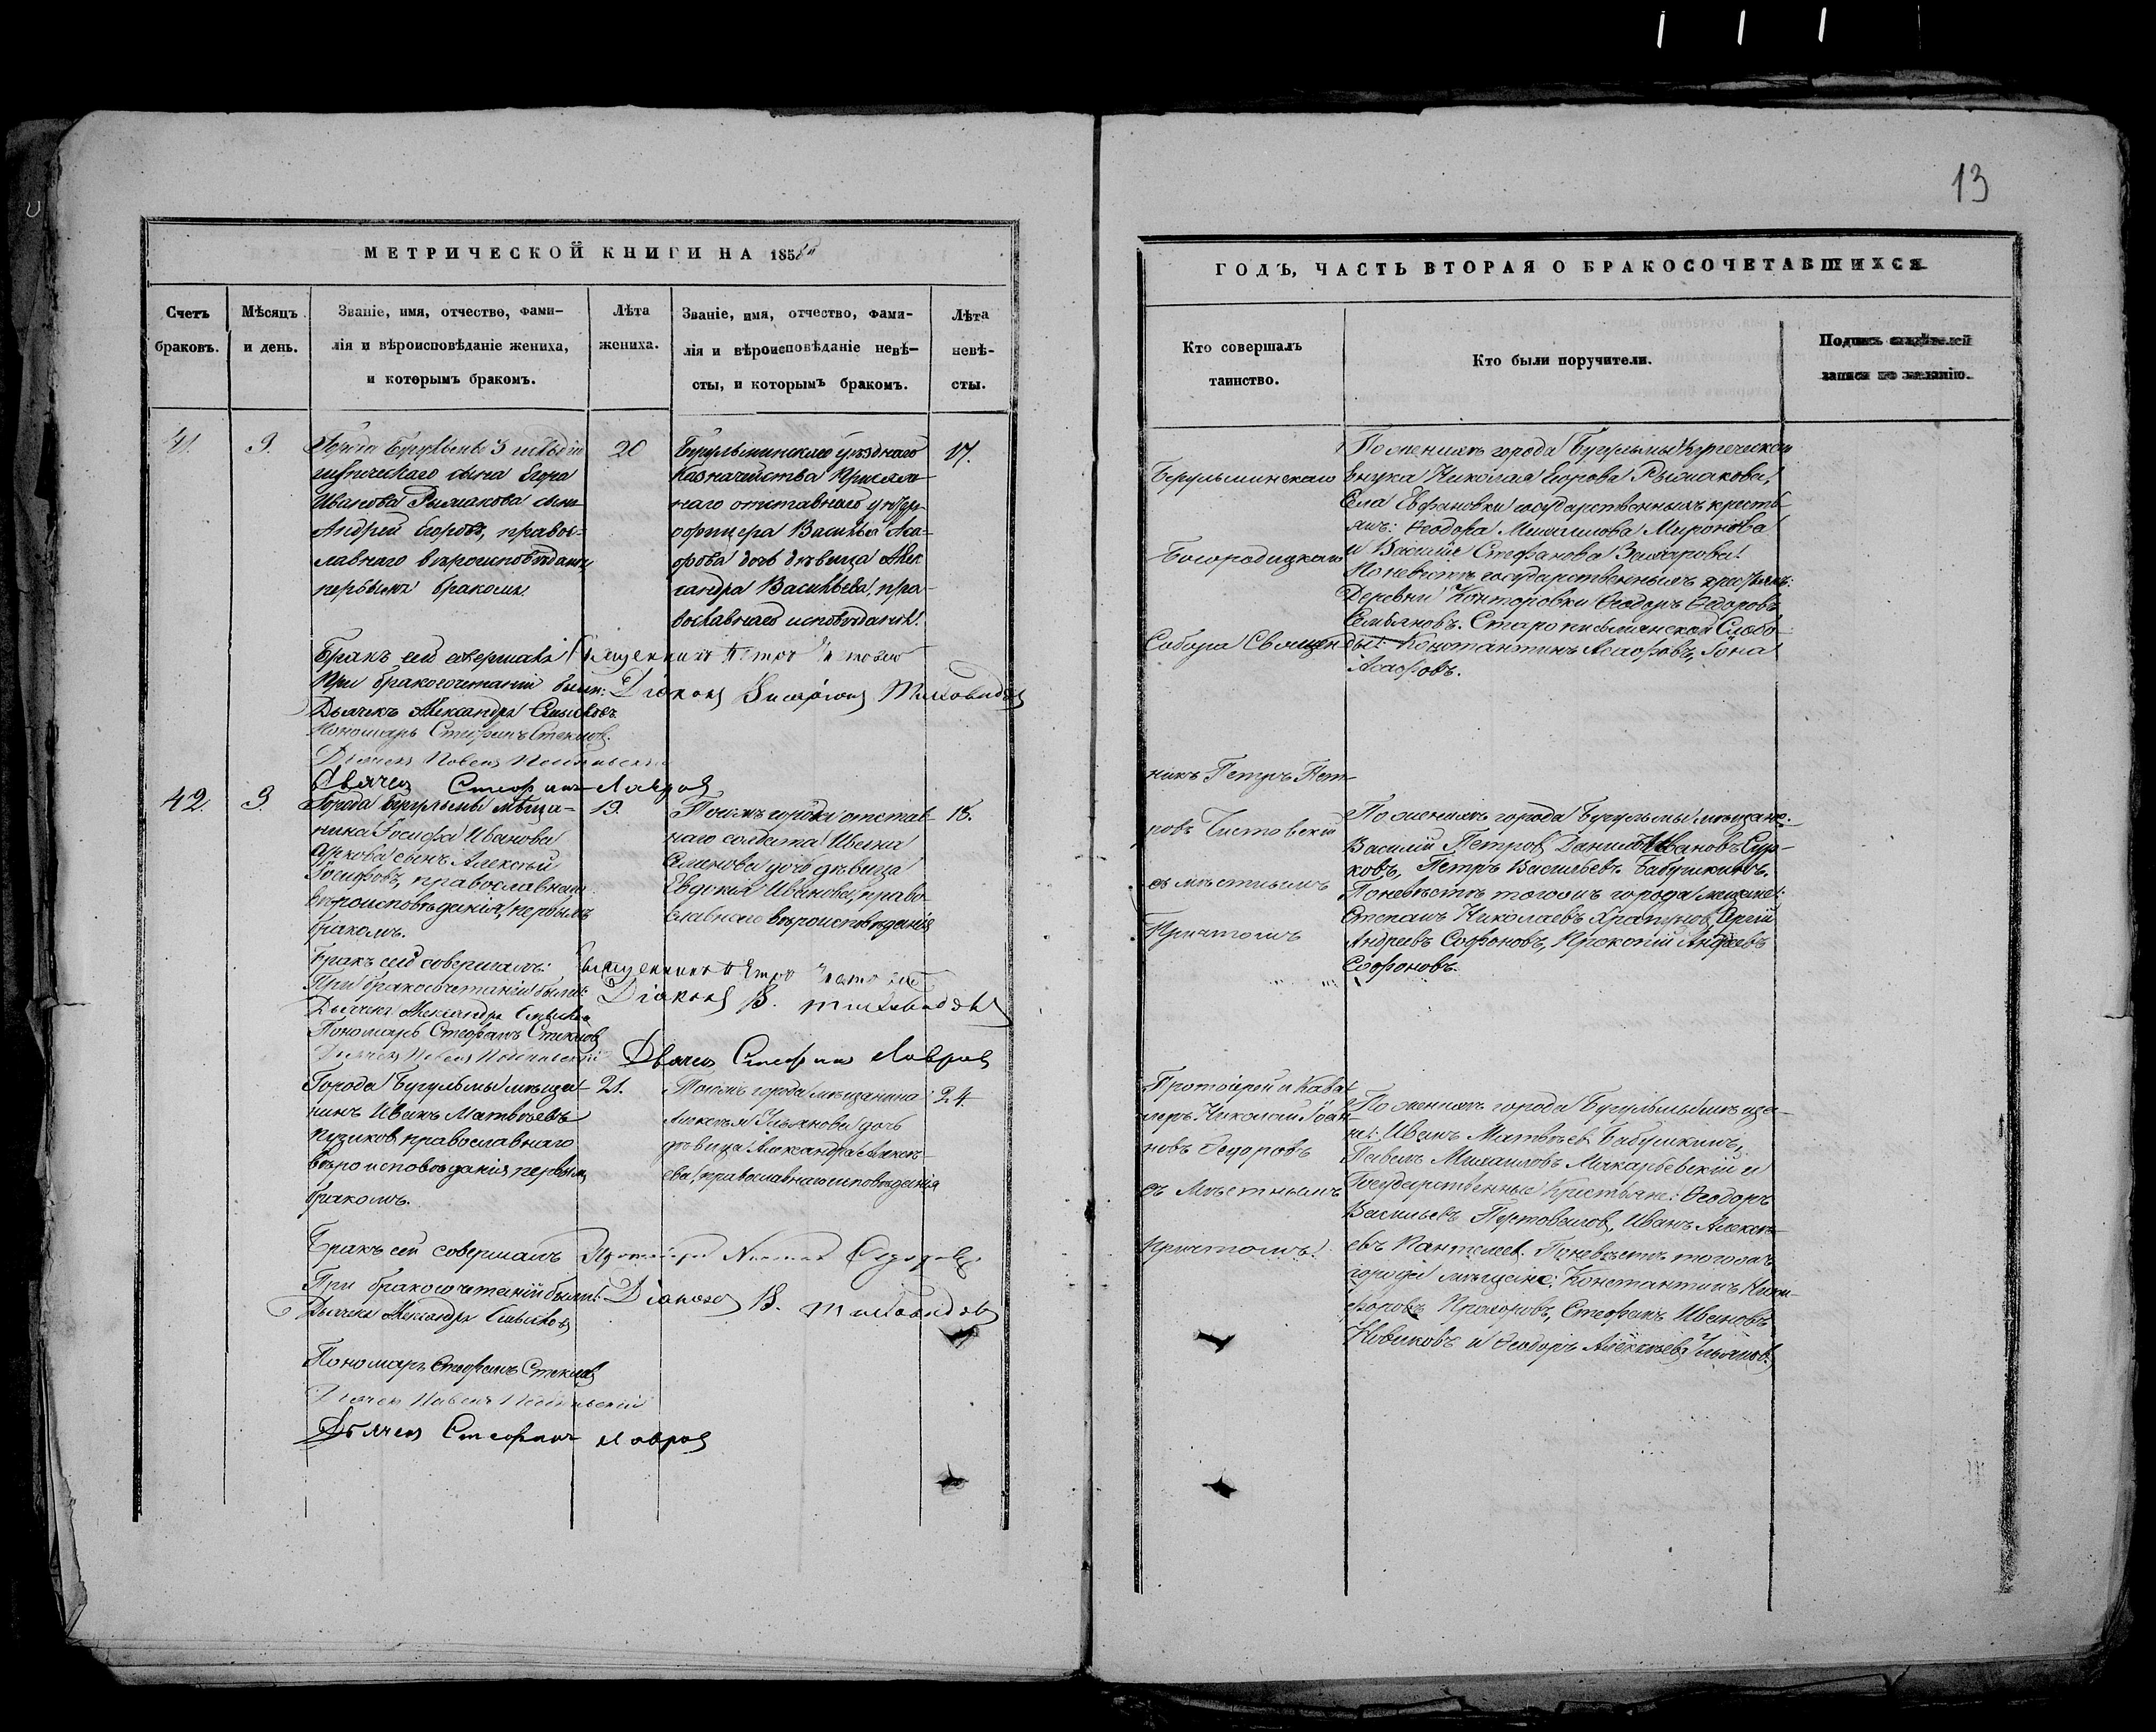 13
МЕТРИЧЕСКОЙ КНИГИ НА 185
Счетъ браковъ.
Мѣсяцъ и день.
Званіе, имя, отчество, фами-
лія и вѣроисповѣданіе жениха,
и которымъ бракомъ.
Лѣта
жениха.
Званіе, имя, отчество, фами-
лія и вѣроисповѣданіе невѣ-
сты, и которымъ бракомъ.
Лѣта
невѣ-
сты.
41.
9.
Города Бугульмы 3 гильдіи
купеческаго сына Егора
Иванова сынъ
Андрей Егоровъ, правос-
лавнаго вѣроисповѣданія
первымъ бракомъ.
20
Бугульминскаго уѣзднаго
Казначейства Присяж-
наго отставнаго унтеръ-
офицера Василья Ага-
фова дочь дѣвица Алек-
сандра Васильева, пра-
вославнаго исповѣданія.
17.
Бракъ сей совершалъ Священникъ Петръ
При бракосочетаніи были: Діаконъ Виссаріонъ Тиховидовъ
Дьячекъ Александръ
Пономарь Стефанъ Стекловъ.
Дьячекъ Павелъ
Дьячекъ Стефанъ Лавровъ
42.
9.
Города Бугульмы мѣща-
нина Іосифа Иванова
сынъ Алексѣй
Іосифовъ, православнаго
вѣроисповѣданія, первымъ
бракомъ.
19.
Тогожъ города отстав-
наго солдата Ивана
Семенова дочь дѣвица
Евдокія Иванова, право-
славнаго вѣроисповѣданія
18.
Бракъ сей совершалъ: Священникъ Петръ
При бракосочетаніи были: Діаконъ В. Тиховидовъ
Дьячекъ Александръ
Пономарь Стефанъ Стекловъ
Дьячекъ Павелъ
Дьячекъ Стефанъ Лавровъ
Города Бугульмы мѣща-
нинъ Иванъ Матвѣевъ
Пузиковъ православнаго
вѣроисповѣданія первымъ
бракомъ.
21.
Тогожъ города мѣщанина
Алексѣя Ульянова дочь
дѣвица Александра Алексѣ-
ева, православнаго исповѣданія
24.
Бракъ сей совершалъ Протоіерей Николай Федоровъ
При бракосочетаніи были: Діаконъ В. Тиховидовъ
Дьячекъ Александръ
Пономарь Стефанъ Стекловъ
Дьячекъ Павелъ
Дьячекъ Стефанъ Лавровъ
ГОДЪ, ЧАСТЬ ВТОРАЯ О БРАКОСОЧЕТАВШИХСЯ
Кто совершалъ
таинство.
Кто были поручители.
Подпись свидѣтелей
записи по желанію.
Бугульминскаго
Богородицкаго
Собора Священ-
никъ Петръ Пет-
ровъ Чистовскій
съ мѣстнымъ
Причтомъ
По женихѣ города Бугульмы Купеческой
внука Николая Егорова
Села Ефановки государственныхъ кресть-
янъ: Ѳеодора Михаилова Миронова
и Василія Стефанова Захарова.
По невѣстѣ государственныхъ крестьянъ:
Деревни Конторовки Ѳеодоръ Ѳедоровъ
Старо письмянской Слобо-
ды: Константинъ Агафовъ, Іона
Агафовъ.
По женихѣ города Бугульмы мѣщане:
Василій Петровъ, Данило Ивановъ Сур-
ковъ, Петръ Васильевъ Бабушкинъ.
По невѣстѣ тогожъ города мѣщане:
Степанъ Николаевъ Храпуновъ,
Андреевъ Софоновъ, Прокопій Андреевъ
Софоновъ.
Протоіерей и Кава-
леръ Николай Іоан-
новъ Ѳедоровъ
съ Мѣстнымъ
Причтомъ.
По женихѣ города Бугульмы мѣща-
не: Иванъ Матвѣевъ Бабушкинъ,
Павелъ Михаиловъ Макарьевскій и
Государственные Крестьяне: Ѳеодоръ
Васильевъ Иванъ Алексѣ-
евъ Пантелеевъ. По невѣстѣ тогожъ
города мѣщане: Константинъ Ники-
форовъ Прохоровъ, Стефанъ Ивановъ
Новиковъ и Ѳеодоръ Алексѣевъ Ульяновъ.